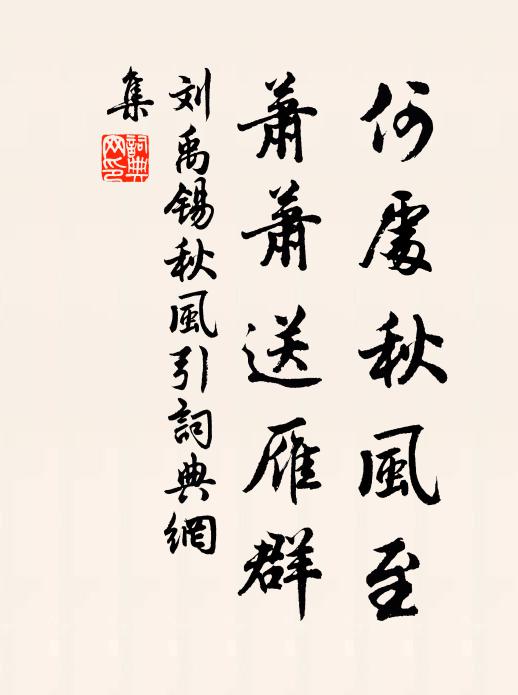 何處秋風至
蕭蕭送雁群
刘禹锡秋風引詞典網
集
詞典
网印